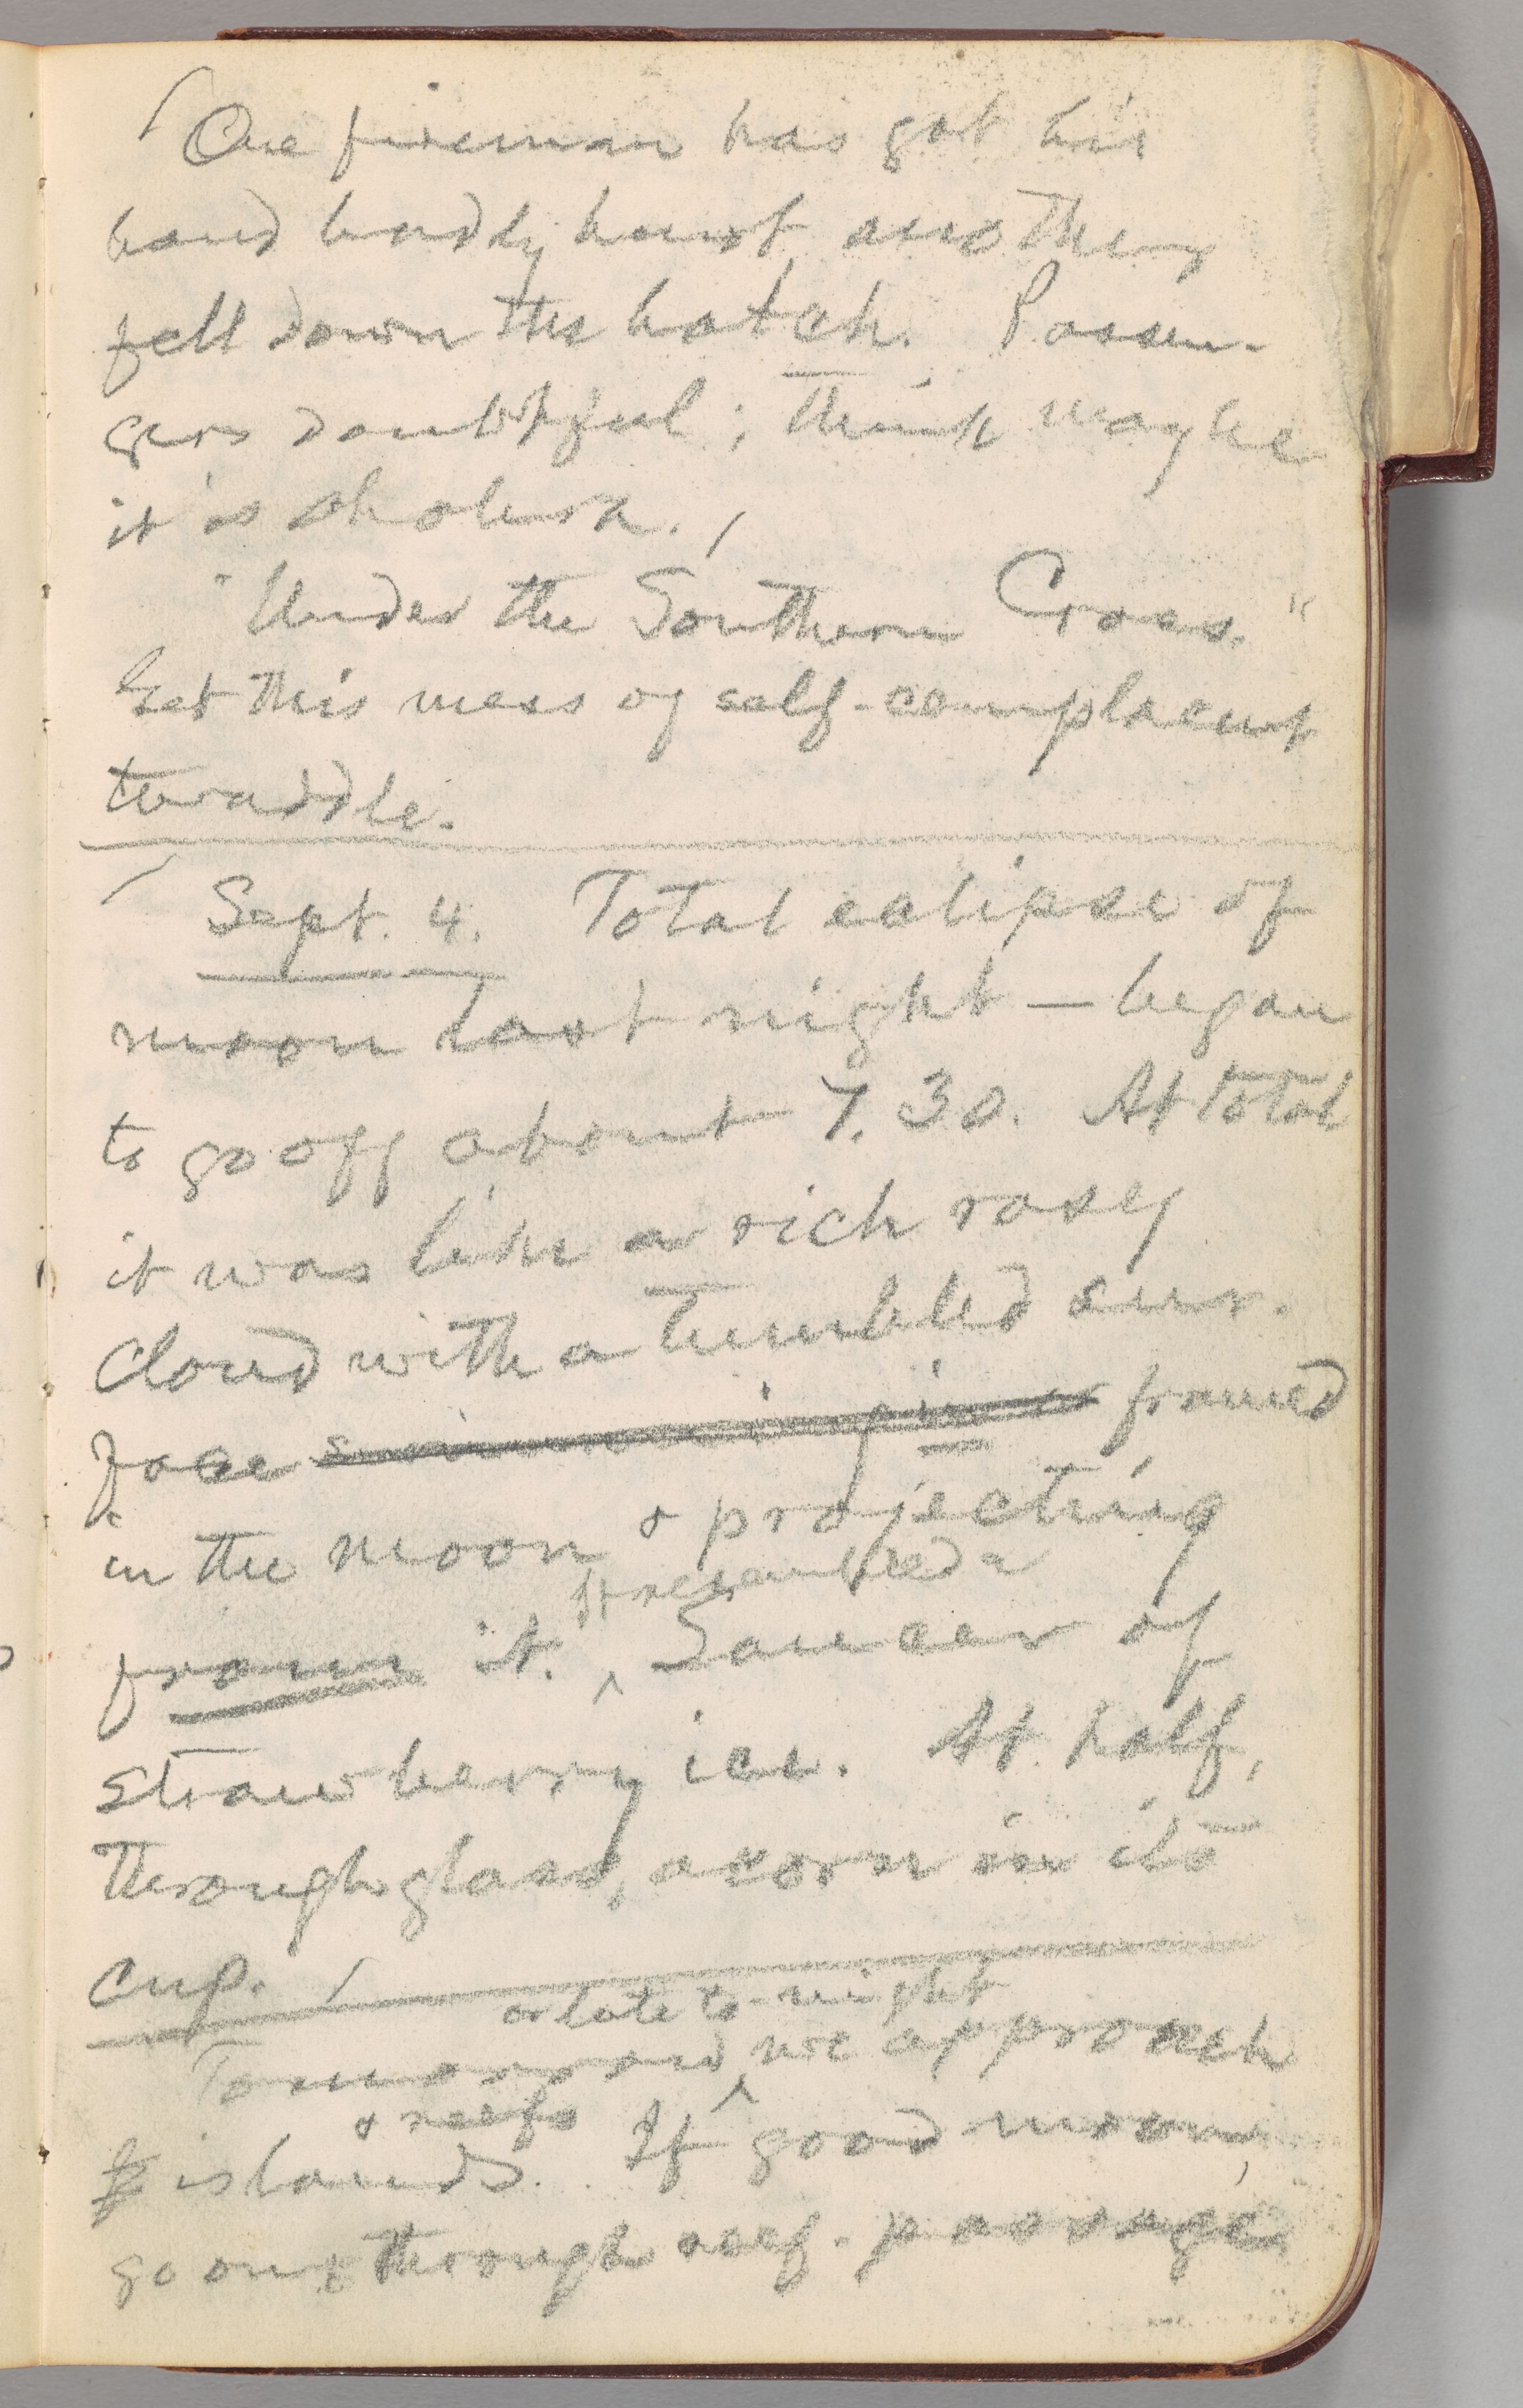 One fireman has got his
hand badly hurt, another
fell down the hatch. Passen-
gers doubtful; think maybe
it is cholera.
"Under the Southern Cross."
Get this mess of self-complacent
twaddle.
Sept. 4. Total eclipse of
moon last night — began
to go off about 7.30. At total
it was like a rich rosey
cloud with a tumbled sur-
face framed
in the moon & projecting
It resembled a
from it. ^ Saucer of
strawberry ice. At half,
through glass, acorn in its
cup.
or late to-night
Tomorrow ^ we approach
& reefs
islands. If good moon,
go on, through reef-passage